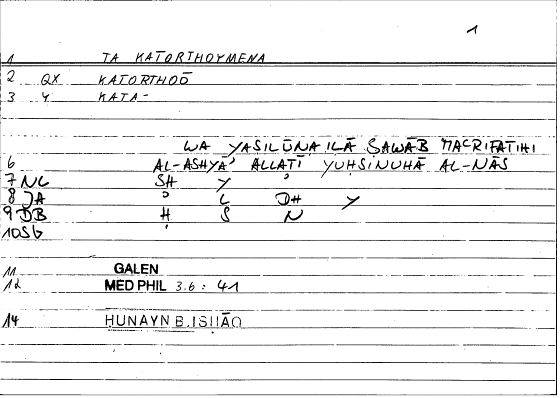 1
1 TA KATORTHOYMENA
2 QX KATORTHOŌ
3 Y KATA-
WA YASILŪNA ILĀ SAWĀB MACRIFATIHI
6 AL-ASHYĀ' ALLATĪ YUḤSINUHĀ AL-NĀS
7 NL SH Y '
8 JA ' L DH Y
9 DB Ḥ S N
10 SG
11 GALEN
12 MED PHIL 3.6: 41
14 ḤUNAYN B. ISḤĀQ